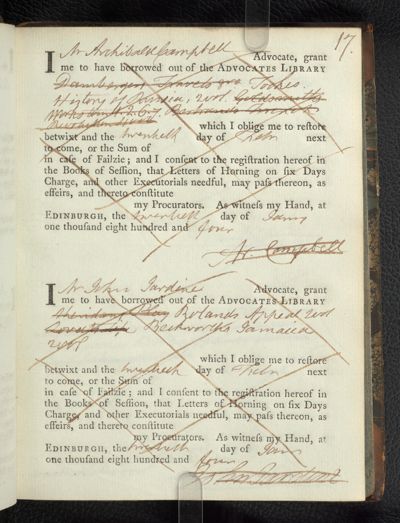 17.
I Mr Archibald Campbell Advocate, grant
me to have borrowed out of the ADVOCATES LIBRARY
Travels
History of Russia, 2 vol. Goldsmith's
Works
which I oblige me to reſtore
betwixt and the twentieth day of next
to come, or the Sum of
in caſe of Failzie; and I conſent to the regiſtration hereof in
the Books of Seſſion, that Letters of Horning on ſix Days
Charge, and other Executorials needful, may paſs thereon, as
effeirs, and thereto conſtitute
my Procurators. As witneſs my Hand, at
EDINBURGH, the twentieth day of Jany
one thouſand eight hundred and four
Ar. Campbell
I Mr John Jardine Advocate, grant
me to have borrowed out of the ADVOCATES LIBRARY
Rolands Appeal 2 vol
Beckworths Jamaica
2 vol
which I oblige me to reſtore
betwixt and the twentieth day of next
to come, or the Sum of
in caſe of Failzie; and I conſent to the regiſtration hereof in
the Books of Seſſion, that Letters of Horning on ſix Days
Charge, and other Executorials needful, may paſs thereon, as
effeirs, and thereto conſtitute
my Procurators. As witneſs my Hand, at
EDINBURGH, the twentieth day of Jany
one thouſand eight hundred and four